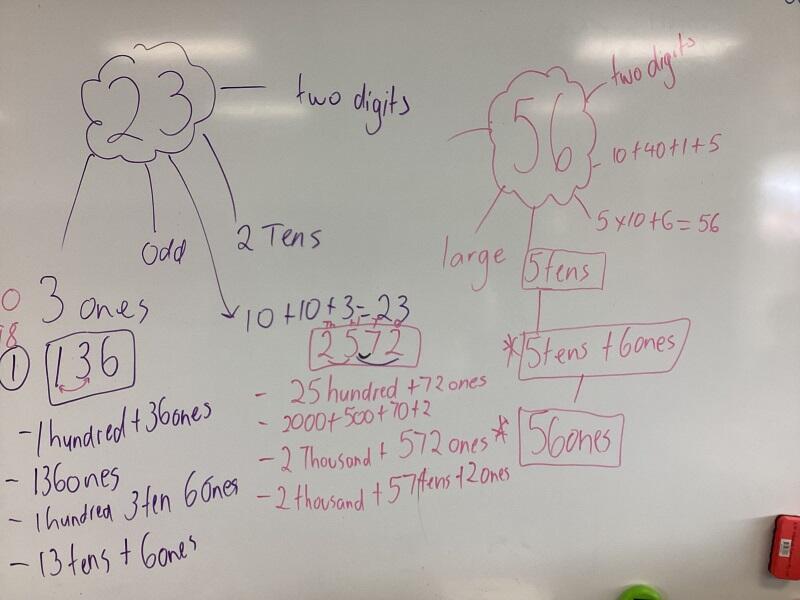 23
two digits
odd
2 Tens
3 ones
10+10+3=23
0
18
1
136
- 1 hundred + 36 ones
- 136 ones
- 1 hundred 3 ten 6 Ones
- 13 tens + 6 ones
2572
- 25 hundred + 72 ones
- 2000+500+70+2
- 2 Thousand + 572 ones
- 2 thousand + 57 tens + 2 ones
56
two digits
10+40+1+5
5×10+6=56
large
5 tens
*5 tens + 6 ones
* 56 ones